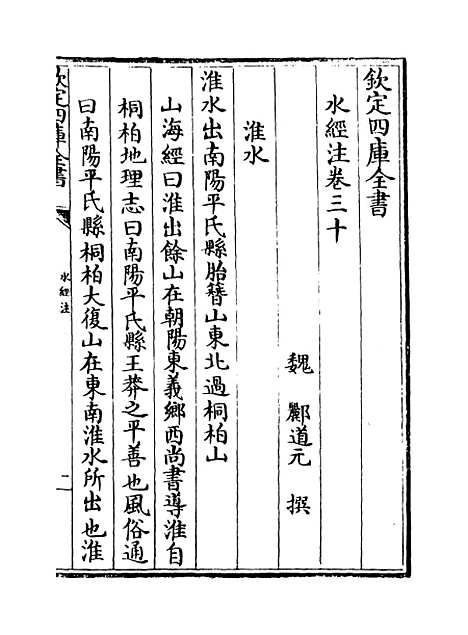 欽定四庫全書
水經注卷三十
魏 酈道元 撰
淮水
淮水出南陽平氏縣胎簪山東北過桐柏山
山海經曰淮出餘山在朝陽東義鄉西尚書導淮自
桐柏地理志曰南陽平氏縣王莽之平善也風俗通
曰南陽平氏縣桐柏大復山在東南淮水所出也淮
欽定四庫全書
水經注
一